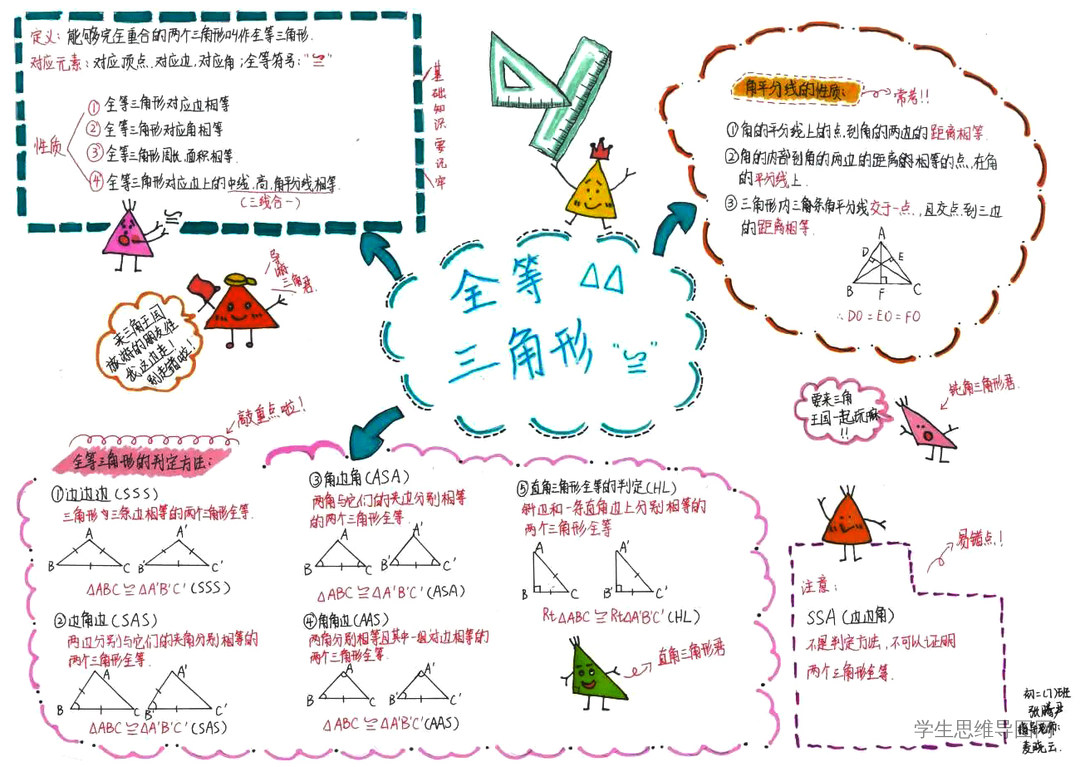 定义：能够完全重合的两个三角形叫作全等三角形.
对应元素：对应顶点、对应边，对应角；全等符号："≌"
性质
① 全等三角形对应边相等
② 全等三角形对应角相等
③ 全等三角形周长、面积相等.
④ 全等三角形对应边上的中线、高、角平分线相等.
(三线合一)
基础知识要记牢
≌
导游三角君.
来三角王国
旅游的朋友往
我这边走！
别走错啦！
全等 △△
三角形 "≌"
角平分线的性质：
常考!!
①角的平分线上的点，到角的两边的距离相等.
②角的内部到角的两边的距离相等的点，在角
的平分线上.
③三角形内三角条角平分线交于一点，且交点到三边
的距离相等.
A
D E
B F C
∴DO=EO=FO
要来三角
王国一起玩嘛
!!
钝角三角形君.
敲重点啦！
全等三角形的判定方法：
①边边边(SSS)
三角形内三条边相等的两个三角形全等.
A A'
B C B' C'
△ABC≌△A'B'C'(SSS)
②边角边(SAS)
两边分别与它们的夹角分别相等的
两个三角形全等.
A A'
B C B' C'
△ABC≌△A'B'C'(SAS)
③角边角(ASA)
两角与它们的夹边分别相等
的两个三角形全等.
A A'
B C B' C'
△ABC≌△A'B'C'(ASA)
④角角边(AAS)
两角分别相等且其中一组对边相等的
两个三角形全等.
A A'
B C B' C'
△ABC≌△A'B'C'(AAS)
⑤直角三角形全等的判定(HL)
斜边和一条直角边上分别相等的
两个三角形全等
A A'
B C B' C'
Rt△ABC≌Rt△A'B'C'(HL)
直角三角形君
易错点！
注意：
SSA(边边角)
不是判定方法，不可以证明
两个三角形全等.
初二(1)班
指导老师：
学生思维导图